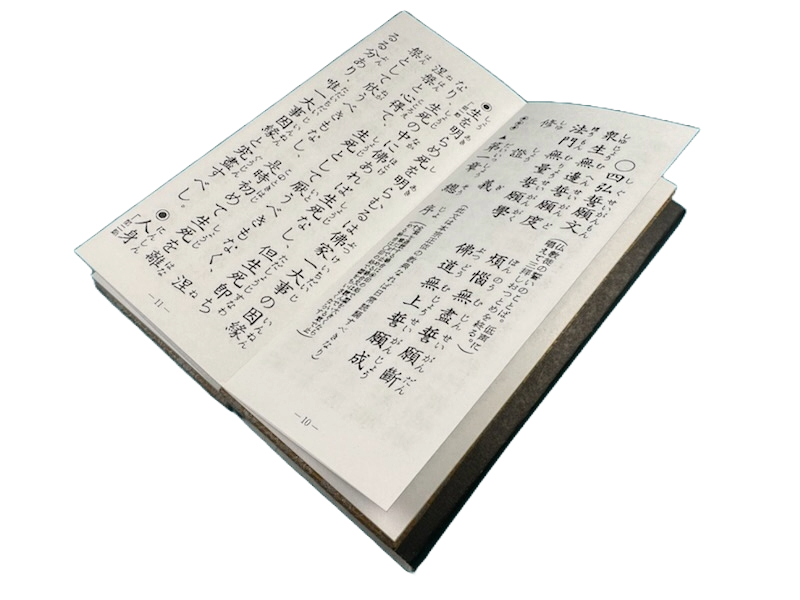 ○四弘誓願文
衆生無邊誓願度 煩惱無盡誓願斷
法門無量誓願學 佛道無上誓願成
修證義
第一章 總序
—10—
◉「生を明らめ死を明らむるは佛家一大事の因縁
なり、生死の中に佛あれば生死なし、但生死即ち
涅槃と心得て、生死として厭うべきもなく、涅
槃として欣うべきもなし、是時初めて生死を離
るる分あり、唯一大事因縁と究盡すべし。◉「人身
—11—